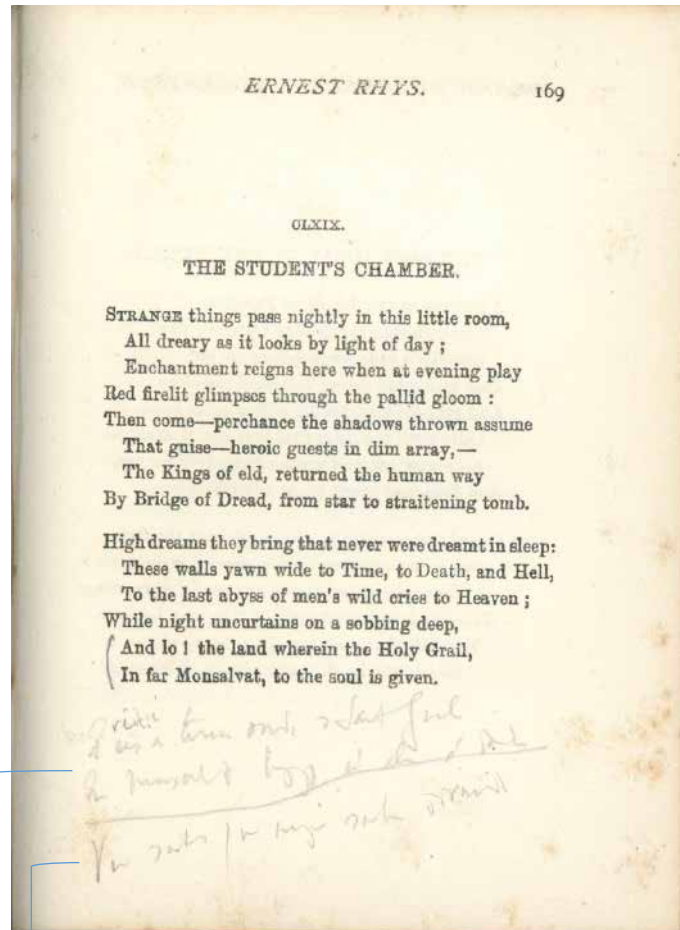 ERNEST RHYS.
169
CLXIX.
THE STUDENT'S CHAMBER.
STRANGE things pass nightly in this little room,
All dreary as it looks by light of day ;
Enchantment reigns here when at evening play
Red firelit glimpses through the pallid gloom :
Then come—perchance the shadows thrown assume
That guise—heroic guests in dim array,—
The Kings of eld, returned the human way
By Bridge of Dread, from star to straitening tomb.
High dreams they bring that never were dreamt in sleep:
These walls yawn wide to Time, to Death, and Hell,
To the last abyss of men's wild cries to Heaven ;
While night uncurtains on a sobbing deep,
And lo ! the land wherein the Holy Grail,
In far Monsalvat, to the soul is given.